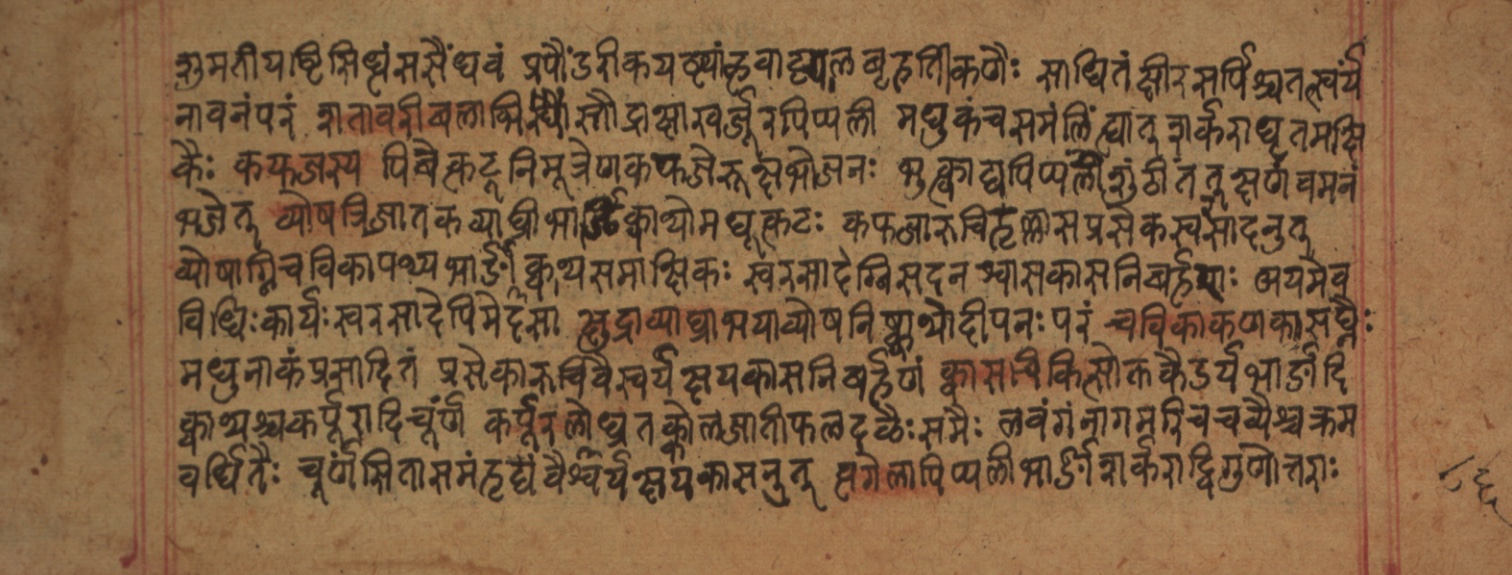 शुमतीयष्टिसिध्धंससैंधवं प्रपौंडरीकयष्ट्यांह्ववाट्यालबृहतीकणैः साधितंक्षीरसर्पिश्चतत्स्वर्य
नावनंपरं शतावरीबलाभिर्वा द्राक्षाखर्जूरपिप्पली मधुकंचसमंलिंह्यात् शर्कराघृतमक्षि
कैः कफजस्य पिबेत्कटूनिमूत्रेणकफजेरूक्षभोजनः भुत्क्वाद्यपिप्पलीशुंठीं वमनं
भजेत् व्योषत्रिजातकव्याघ्रीभार्ङीक्वाथोमधूत्कटः कफजारुचिहृल्लासप्रसेकस्वरसादनुत्
व्योषाग्निचविकापथ्यभार्ङीक्वाथसमाक्षिकः स्वरसादेग्निसदनश्वासकासनिबर्हणः अयमेव
विधिःकार्यःस्वरसादेपिमेदसा क्षुद्राव्याघ्राभयाव्योषनिःक्वाथोदीपनःपरं चविकाकणकासघ्नैः
मधुनाकंप्रसादितं प्रसेकारुचिवैस्वर्यक्षयकासनिबर्हणं कासचिकित्सोक्तकैडर्यभार्ङादि
क्वाथश्चकर्पूरादिचूर्णं कर्पूरलोध्रतक्कोलजातीफलदलैःसमैः लवंगंनागमरिचचव्यैश्चक्रम
वर्धितैः चूर्णंसितासमंहृद्यंवैश्वर्यक्षयकासनुत् मृगेलापिप्पलीभार्ङीशर्कराद्विगुणोत्तराः